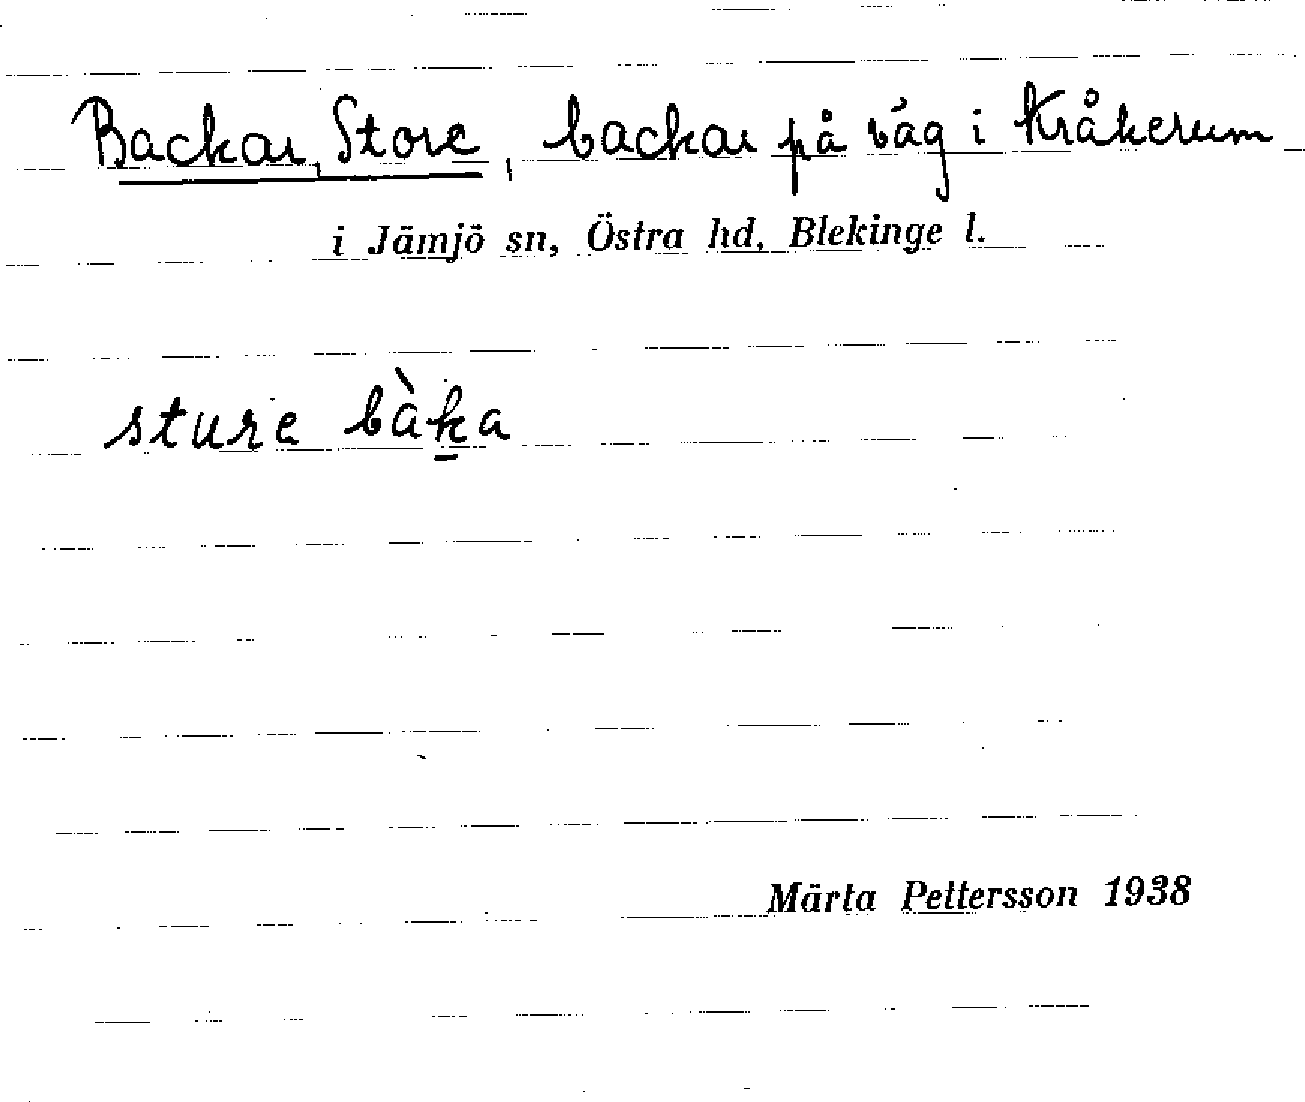 Backar, Store, backar på väg i Kråkerum
i Jämjö sn, Östra hd, Blekinge l.
sture bàka
Märta Pettersson 1938